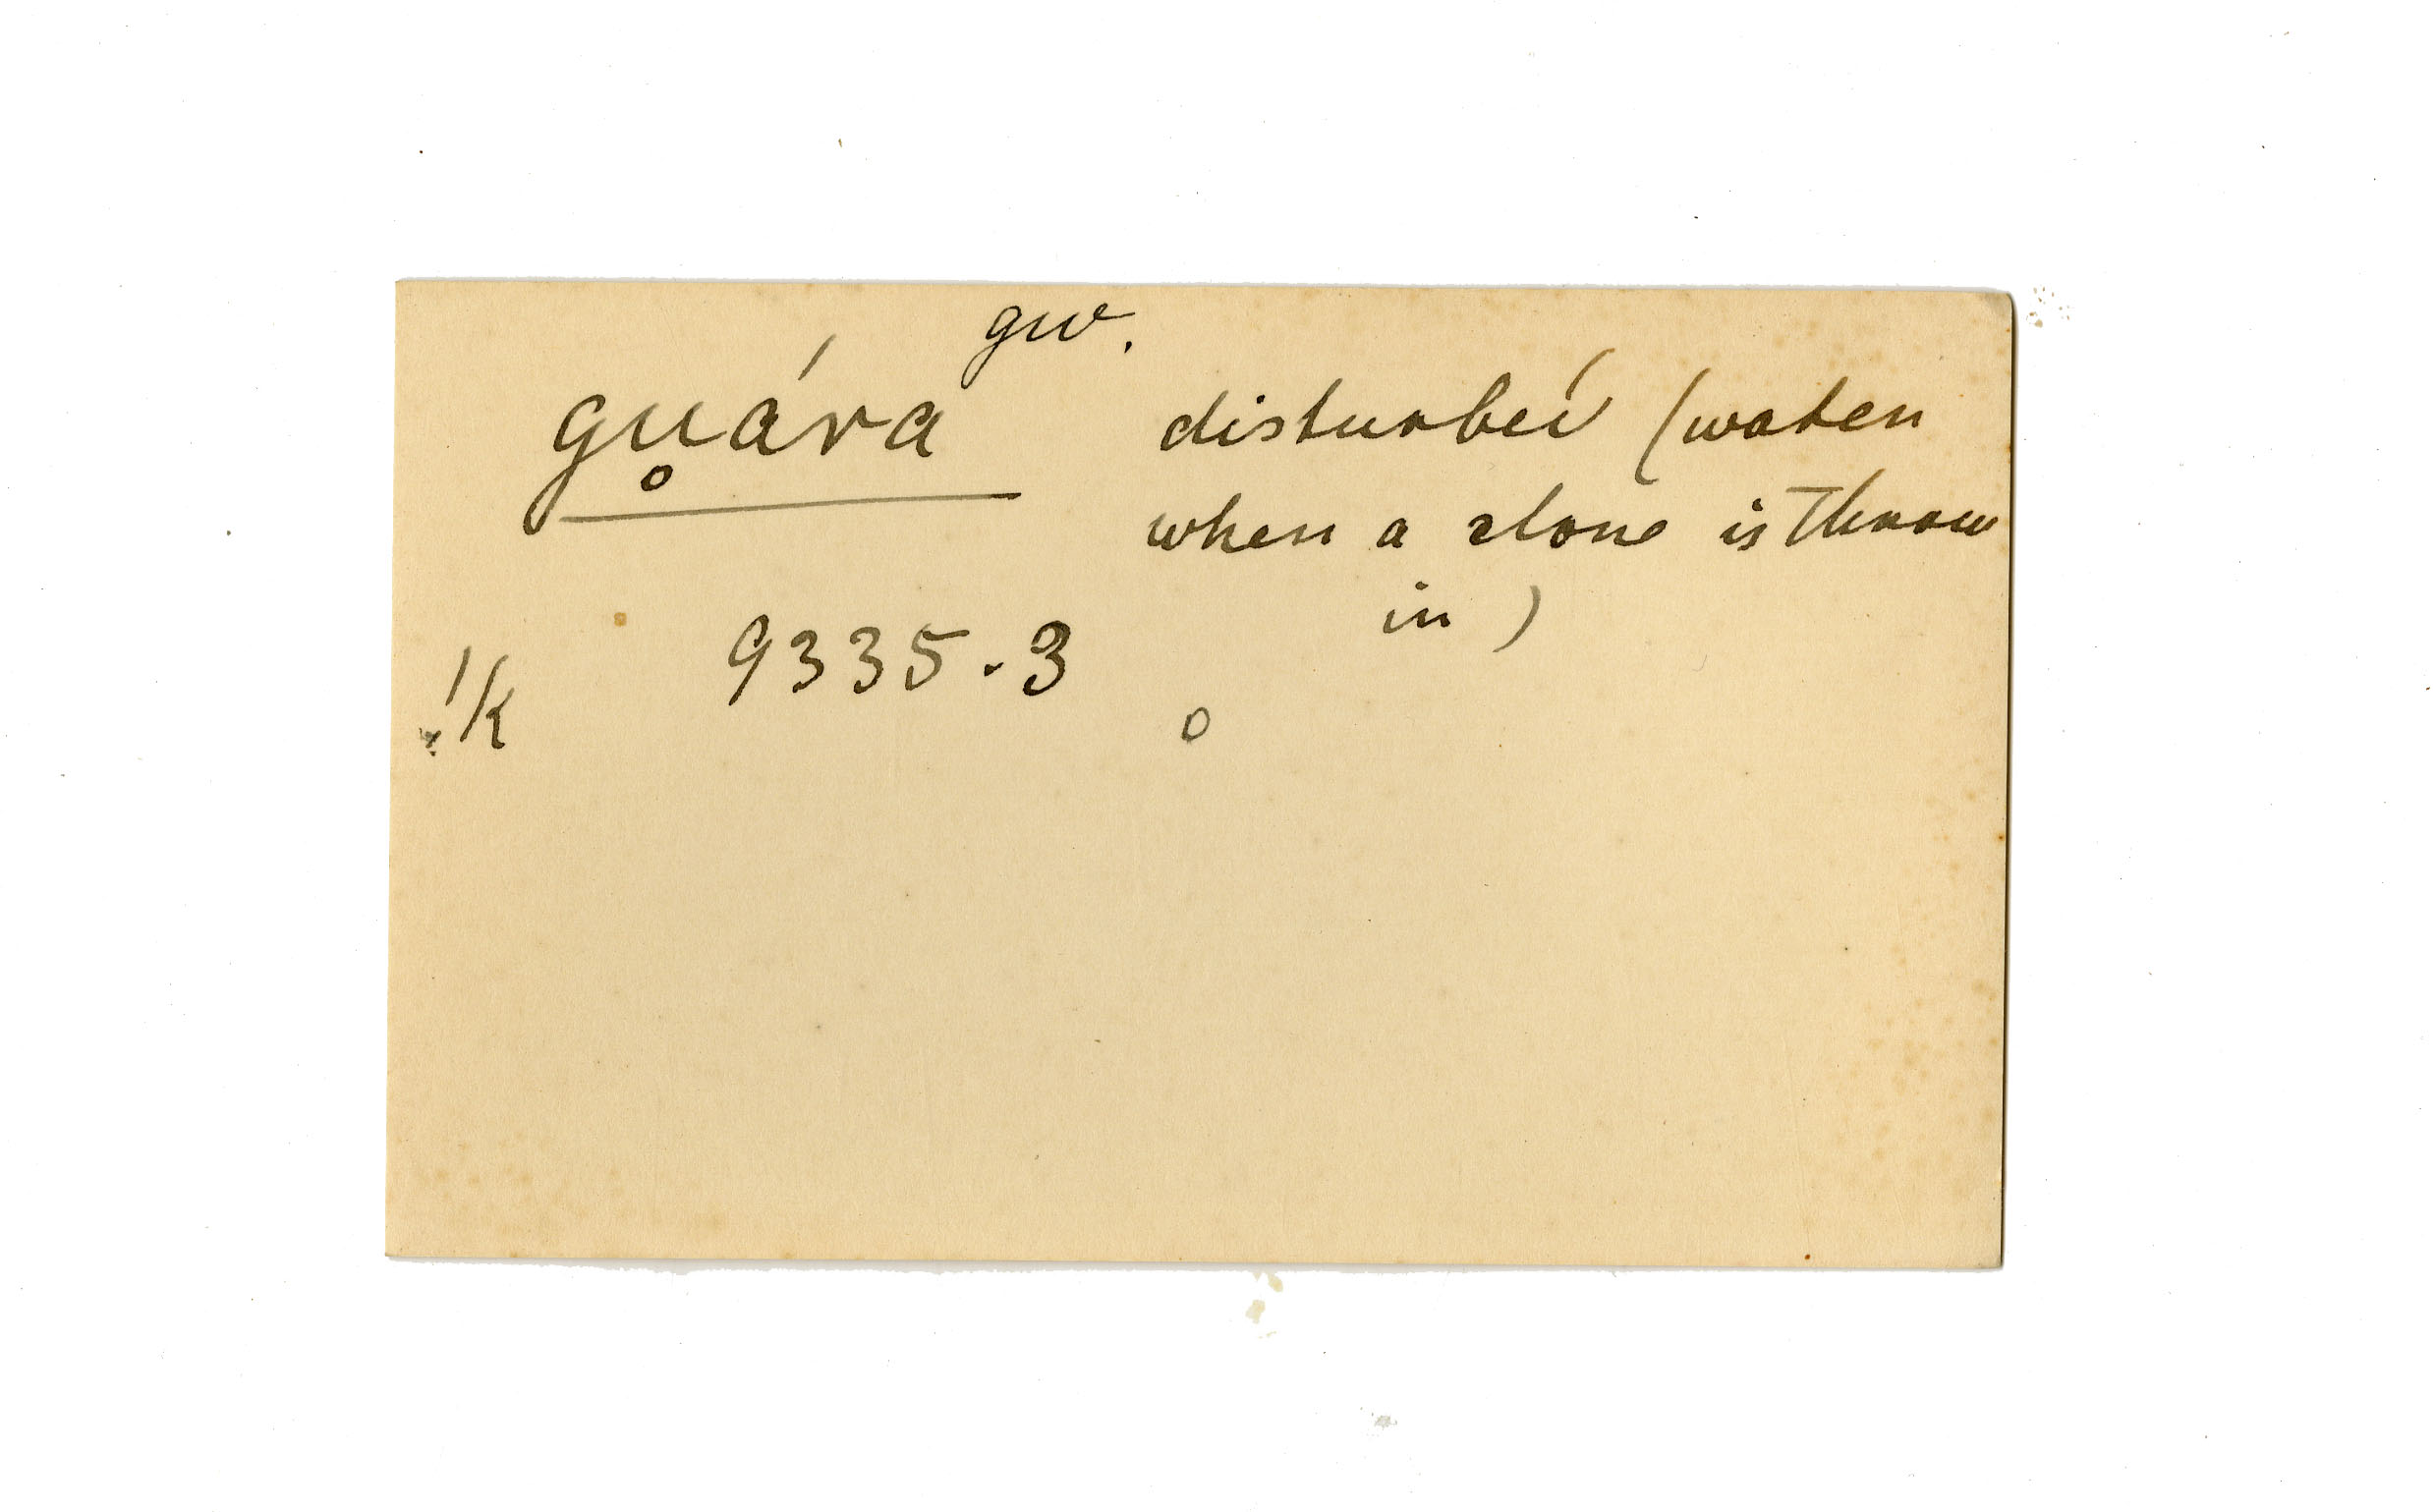 gw.
gu̥ára disturbed (water
when a stone is thrown
in)
9335.3
!k
o